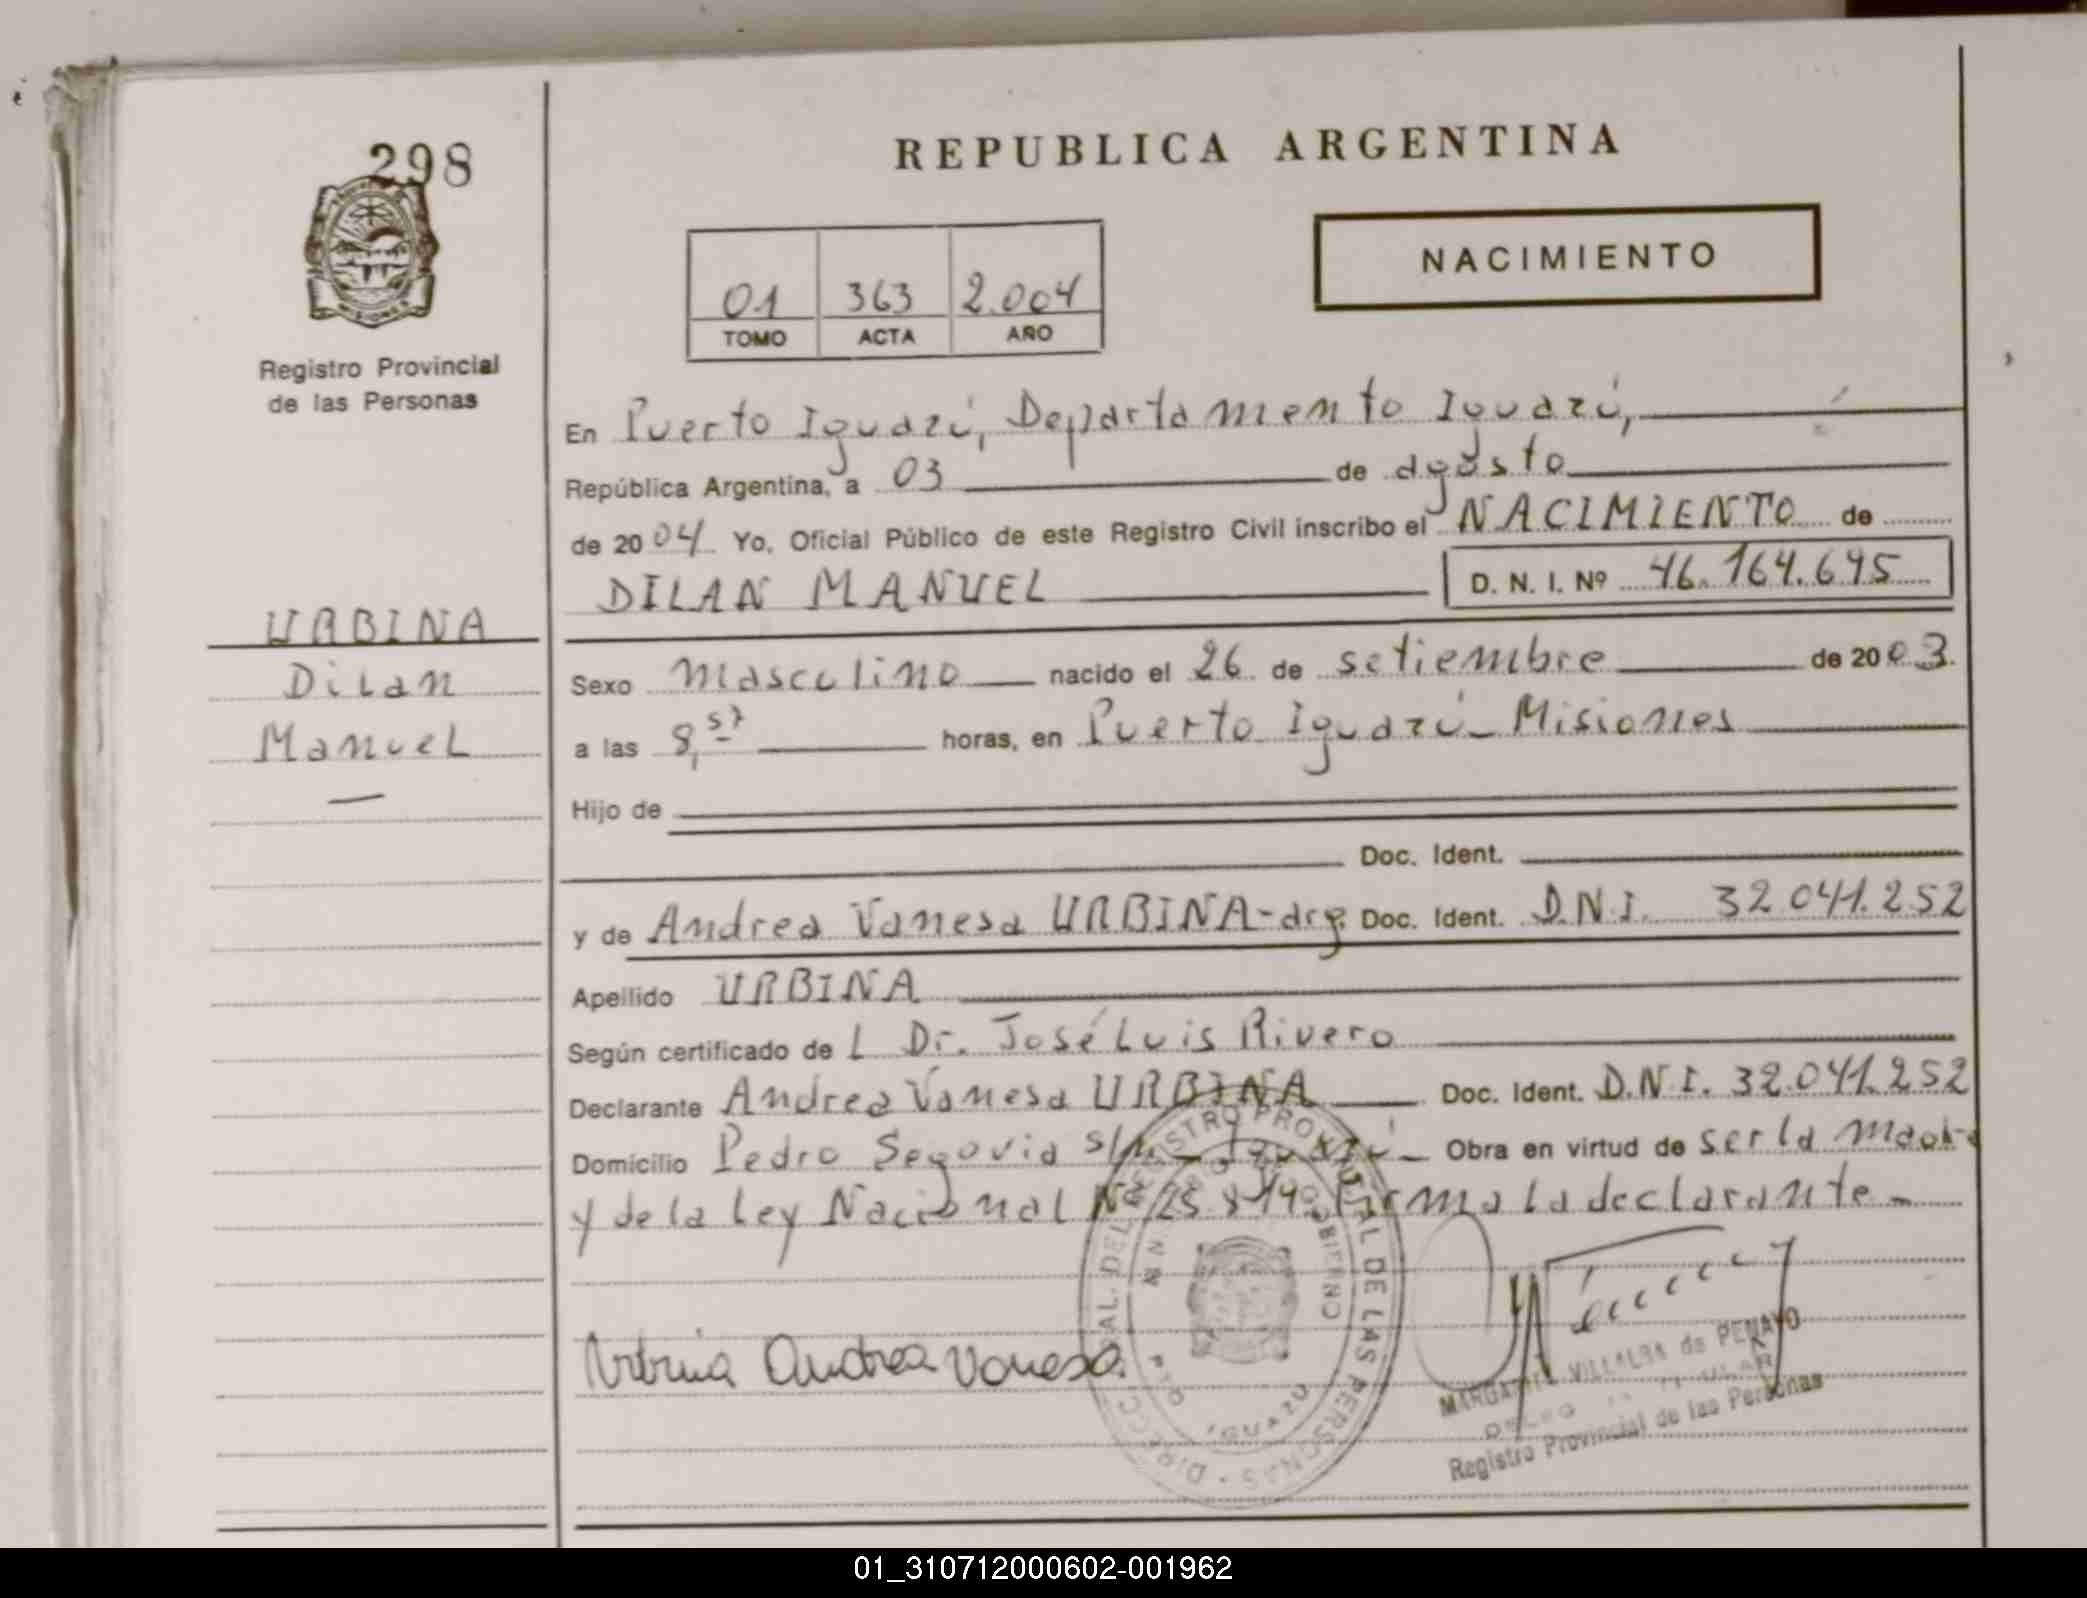 298
REPUBLICA ARGENTINA
NACIMIENTO
01 363 2.004
TOMO ACTA AÑO
MISIONES
Registro Provincial
de las Personas
En Puerto Iguazú, Departamento Iguazú,
República Argentina, a 03 de agosto
de 2004 Yo, Oficial Público de este Registro Civil inscribo el NACIMIENTO de
DILAN MANUEL D. N. I. Nº 46.164.695
URBINA
Dilan
Manuel
Sexo masculino nacido el 26 de setiembre de 2003.
a las 8, horas, en Puerto Iguazú - Misiones
Hijo de
Doc. Ident.
y de Andrea Vanesa URBINA-arg. Doc. Ident. D.N.I. 32.041.252
Apellido URBINA
Según certificado del Dr. José Luis Rivero
Declarante Andrea Vanesa URBINA Doc. Ident. D.N.I. 32.041.252
Domicilio Pedro Segovia s/n - Iguazú - Obra en virtud de ser la madre
y de la Ley Nacional Nº 25.819. Firma la declarante -
Urbina Andrea Vanesa
DIRECC. GRAL. DEL REGISTRO PROVINCIAL DE LAS PERSONAS
MINISTERIO DE GOBIERNO
PTO. IGUAZU
VILLALBA de PENAYO
Registro Provincial de las Personas
01_310712000602-001962